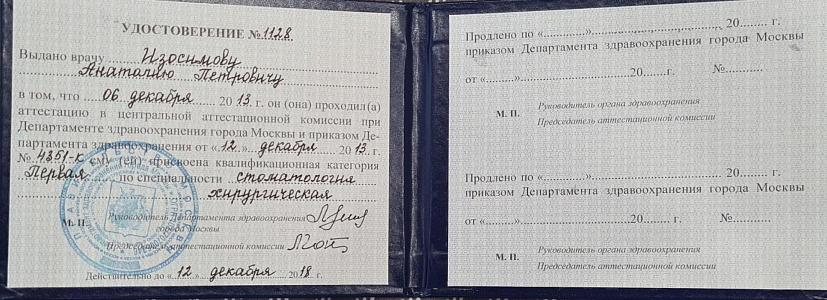 УДОСТОВЕРЕНИЕ № 1128
Выдано врачу Изосимову
Анатолию Петровичу
в том, что 06 декабря 2013 г. он (она) проходил(а)
аттестацию в центральной аттестационной комиссии при
Департаменте здравоохранения города Москвы и приказом Де-
партамента здравоохранения от «12» декабря 2013 г.
№ 4351-к ему (ей) присвоена квалификационная категория
Первая по специальности стоматология
хирургическая
Руководитель Департамента здравоохранения
М. П. города Москвы
Председатель аттестационной комиссии
Действительно до «12» декабря 2018 г.
Продлено по «............».............................................. 20........ г.
приказом Департамента здравоохранения города Москвы
от «.........».............................. 20.......г. №............
Руководитель органа здравоохранения
М. П.
Председатель аттестационной комиссии
Продлено по «............».............................................. 20........ г.
приказом Департамента здравоохранения города Москвы
от «.........».............................. 20....... г. №............
Руководитель органа здравоохранения
М. П.
Председатель аттестационной комиссии